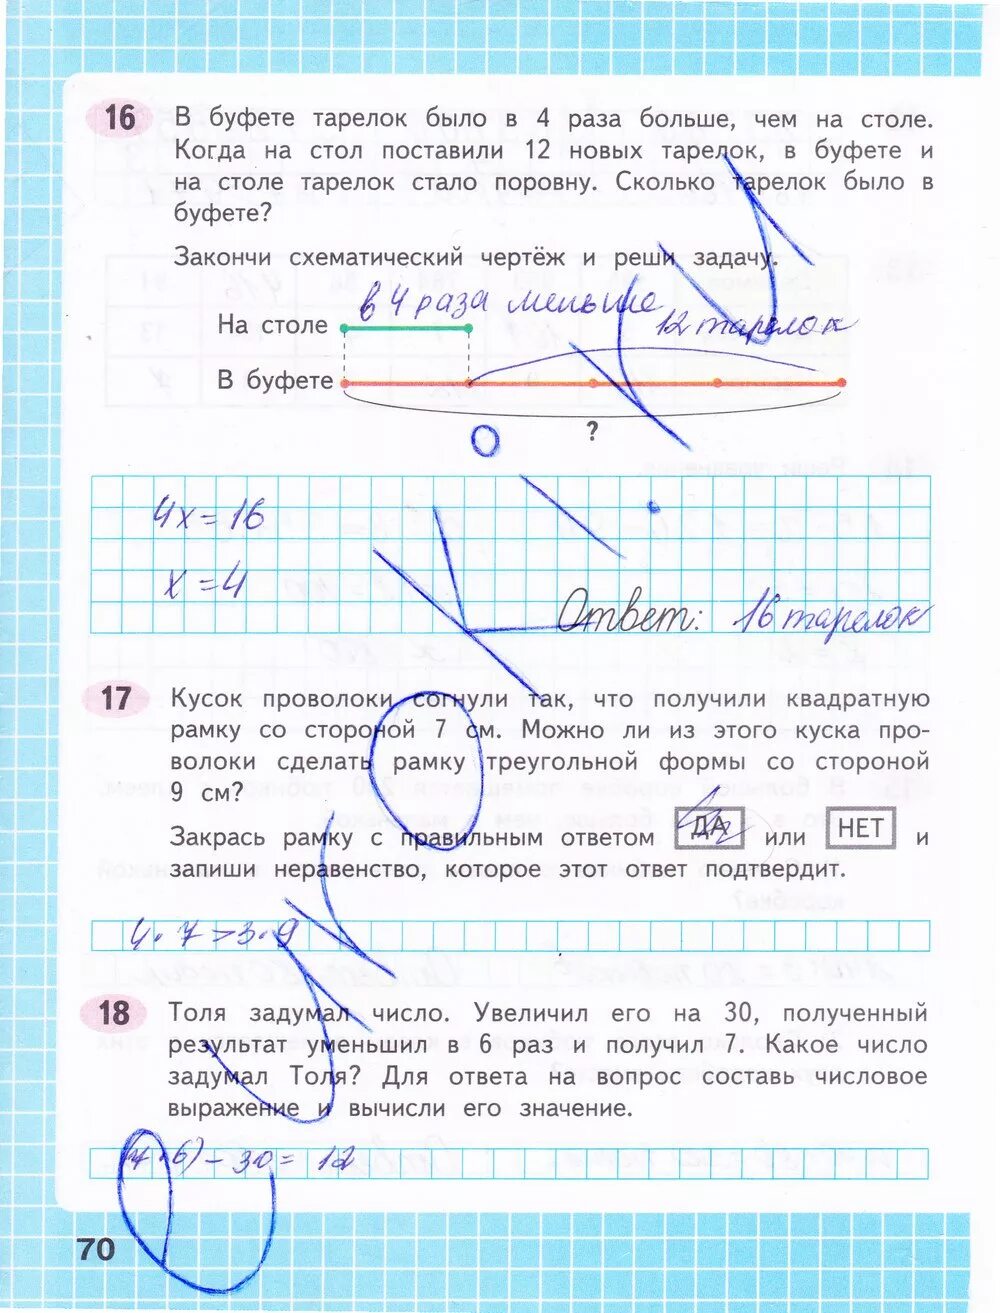 16 В буфете тарелок было в 4 раза больше, чем на столе.
Когда на стол поставили 12 новых тарелок, в буфете и
на столе тарелок стало поровну. Сколько тарелок было в
буфете?
Закончи схематический чертёж и реши задачу.
в 4 раза меньше
На столе
12 тарелок
В буфете
?
4x = 16
x = 4
Ответ: 16 тарелок
17 Кусок проволоки согнули так, что получили квадратную
рамку со стороной 7 см. Можно ли из этого куска про-
волоки сделать рамку треугольной формы со стороной
9 см?
Закрась рамку с правильным ответом ДА или НЕТ и
запиши неравенство, которое этот ответ подтвердит.
4 · 7 > 3 · 9
18 Толя задумал число. Увеличил его на 30, полученный
результат уменьшил в 6 раз и получил 7. Какое число
задумал Толя? Для ответа на вопрос составь числовое
выражение и вычисли его значение.
(7 · 6) – 30 = 12
70